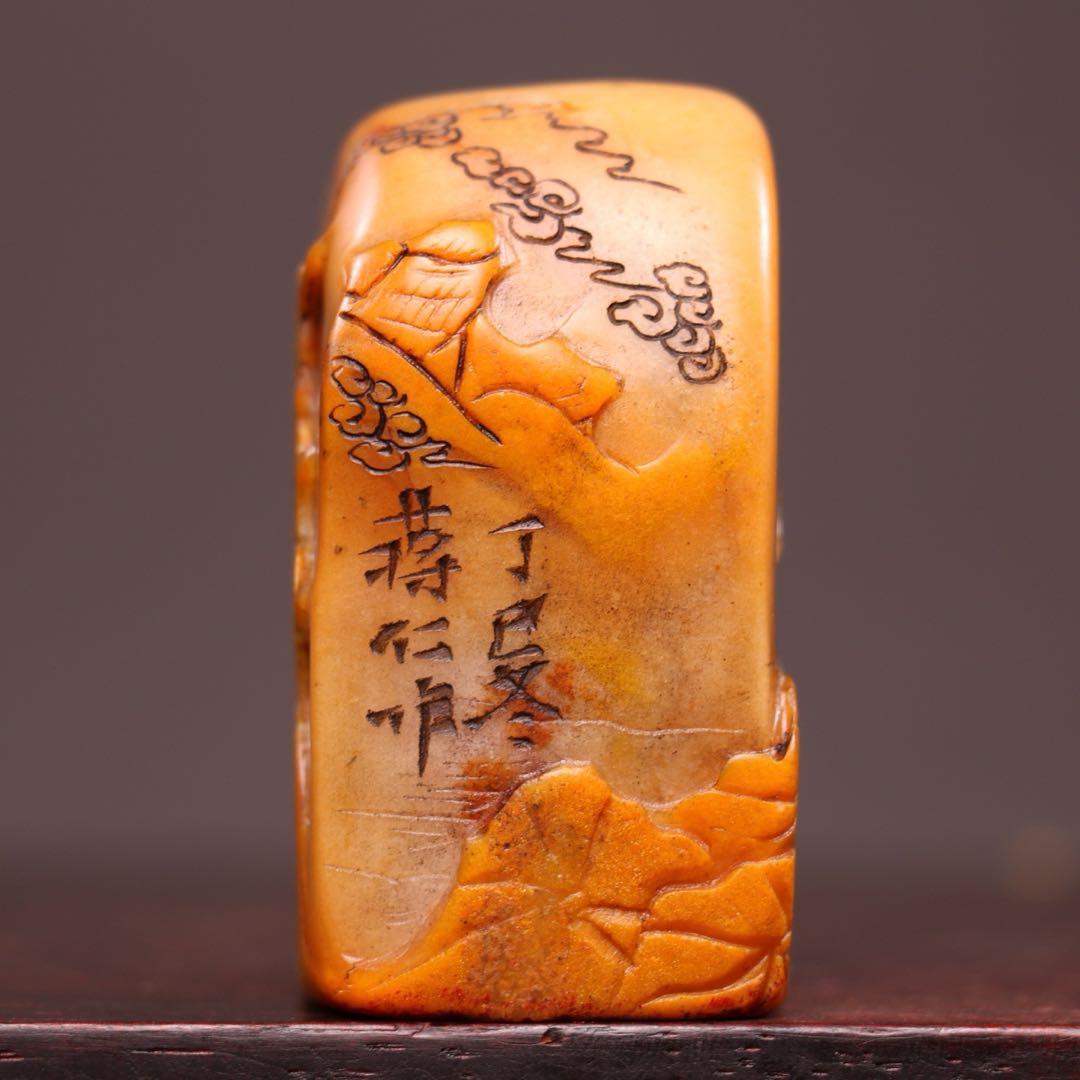 丁巳冬
蒋仁作